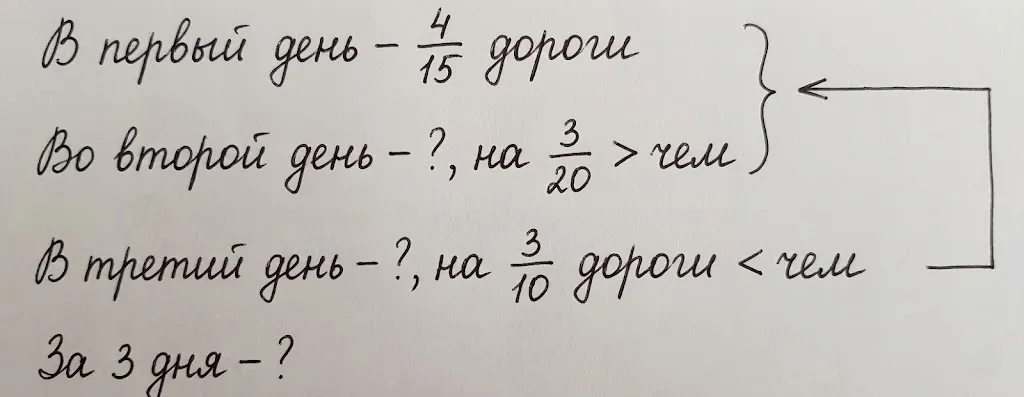 В первый день – 4/15 дороги
Во второй день – ?, на 3/20 > чем
В третий день – ?, на 3/10 дороги < чем
За 3 дня – ?